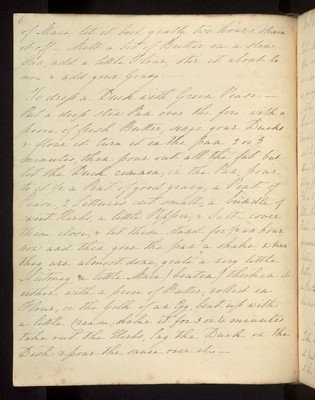 6
of Mace let it boil gently two hours strain
it off - Melt a bit of Butter in a stew
Pan, add a little Flour, stir it about to
& add your Gravy -
To dress a Duck with Green Pease -
Put a deep stew Pan over the fire with a
piece of fresh Butter, singe your Ducks
& flour it turn it in the Pan 2 or 3
minutes, then pour out all the fat but
let the Duck remain in the Pan, pour
to it a Pint of good gravy, a Pint of
Pease, 2 Lettuces cut small, a bundle of
sweet Herbs, a little Pepper, & Salt cover
them close, & let them stand for half an hour
now and then give the pan a shake, when
they are almost done, grate a very little
Nutmeg & little Mace (beaten) thicken it
either with a piece of Butter, rolled in
Flour, or the Yolk of an Egg, beat up with
a little Cream, shake it for 3 or 4 minutes
take out the Herbs, lay the Duck in the
Dish & pour the sauce over it -